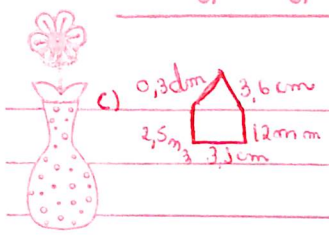 c) 0,3dm 3,6cm
12mm
3,1cm